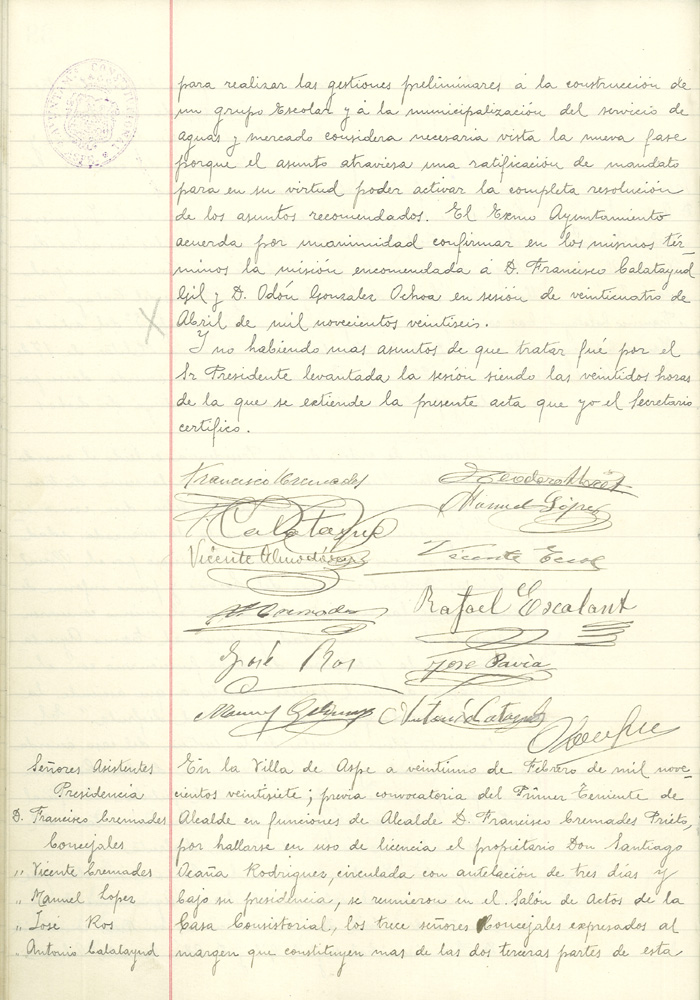 AYUNTAMIENTO CONSTITUCIONAL
para realizar las gestiones preliminares á la construcción de
un grupo Escolar y á la municipalización del servicio de
aguas y mercado considera necesaria vista la nueva fase
porque el asunto atraviesa una ratificación de mandato
para en su virtud poder activar la completa resolución
de los asuntos recomendados. El Exmo Ayuntamiento
acuerda por unanimidad confirmar en los mismos tér-
minos la misión encomendada á D. Francisco Calatayud
Gil y D. Odón Gonzalez Ochoa en sesión de veinticuatro de
Abril de mil novecientos veintiseis.
Y no habiendo mas asuntos de que tratar fué por el
Sr Presidente levantada la sesión siendo las veintidos horas
de la que se extiende la presente acta que yo el Secretario
certifico.
Francisco Cremades
Manuel López
Calatayud
Vicente Almodóvar
Vicente
Cremades
Rafael Escalant
José Ros
José Pavia
Manuel
Antonio Calatayud
Señores Asistentes
Presidencia
D. Francisco Cremades
Concejales
,, Vicente Cremades
,, Manuel Lopez
,, José Ros
,, Antonio Calatayud
En la Villa de Aspe a veintiuno de Febrero de mil nove-
cientos veintisiete; previa convocatoria del Primer Teniente de
Alcalde en funciones de Alcalde D. Francisco Cremades Prieto,
por hallarse en uso de licencia el propietario Don Santiago
Acaña Rodriguez, circulada con antelación de tres días y
bajo su presidencia, se reunieron en el Salón de Actos de la
Casa Consistorial, los trece señores Concejales expresados al
margen que constituyen mas de las dos terceras partes de esta